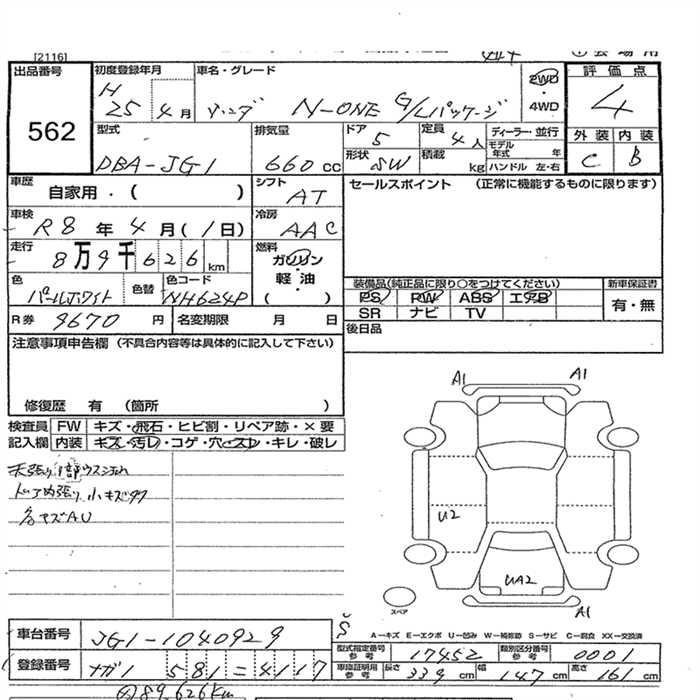 [2116]
出品番号 562
初度登録年月 H 25年 4月
車名・グレード ホンダ N-ONE G/Lパッケージ
2WD ・ 4WD
評価点 4
外装 C 内装 B
型式 DBA-JG1
排気量 660 cc
ドア 5
形状 SW
定員 4人
積載 kg
ディーラー・並行
モデル年式 年
ハンドル 左・右
車歴 自家用・( )
シフト AT
セールスポイント (正常に機能するものに限ります)
車検 R8年 4月(1日)
冷房 AAC
走行 8万9千626km
燃料 ガソリン・軽油 ( )
色 パールホワイト 色替
色コード NH624P
装備品(純正品に限り○をつけてください)
PS PW ABS エアB
SR ナビ TV
新車保証書 有・無
R券 9670円
名変期限 月 日
後日品
注意事項申告欄(不具合内容等は具体的に記入して下さい)
修復歴 有 (箇所 )
検査員記入欄
FW キズ・飛石・ヒビ割・リペア跡・×要
内装 キズ・汚レ・コゲ・穴・スレ・キレ・破レ
ドア内張り 小キズ
各キズAU
A1 A1
U2
UA2
A1
スペア
A-キズ E-エクボ U-凹み W-補修跡 S-サビ C-腐食 XX-交換済
車台番号 JG1-1040929
型式指定番号 参考 17452
類別区分番号 参考 0001
登録番号 ナガ1 581 4117
車庫証明用 参考 長さ 339cm 幅 147cm 高さ 161cm
89,626km